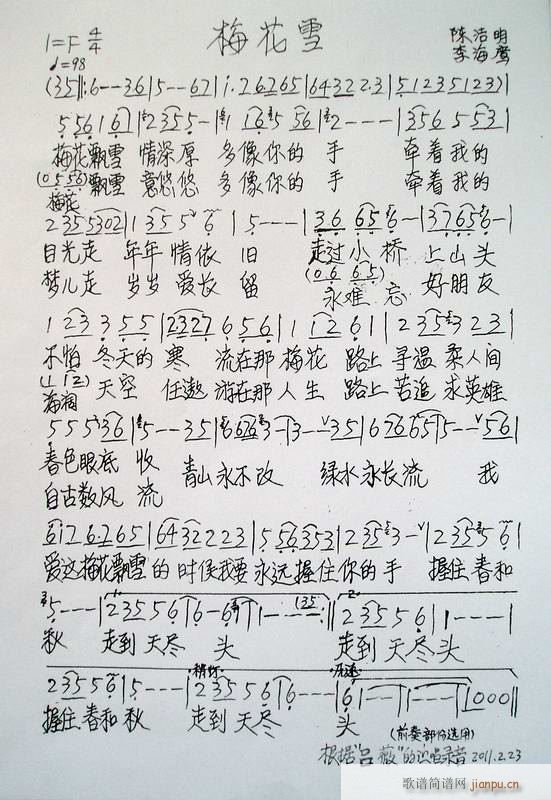 梅花雪
1=F 4/4
♩=98
陈浩明
李海鹰
(35‖:6--36|5--67|i.26265|6432 2.3|51235123)|
556 1 61|2355-|1 165 556|2---|356 5 53|
梅花飘雪 情深厚 多像你的 手 牵着我的
(0556)飘雪 意悠悠 多像你的 手 牵着我的
梅花
2355302|1355 6|5---|
目光走 年年情依 旧 走过小桥 上山头
梦儿走 岁岁爱长 留 永难忘 好朋友
1 23 3 55|2327 6 56|1 12 61|2 35 3 23|
不怕 冬天的 寒 流在那 梅花 路上 寻温 柔人间
(1 12) 天空 任遨 游在那 人生 路上 苦追 求英雄
海阔
555 36|5--35|6676 3-|3--35|6 76 65|5--56|
春色眼底 收 青山永不改 绿水永长流 我
自古数风 流
6i26265|6432 223|5 56 353|235 3-|2355 6|
爱这梅花飘雪的 时候我要 永远握住你的手 握住春和
5---|23556|6-61|1---35:‖23556|1---|
秋 走到天尽 头 走到天尽头
稍快 原速
23556|5---|23556|6---|6 1---|1---|1000‖
握住春和秋 走到天尽 头
(前奏部份选用)
根据"吕薇"的演唱录音 2011.2.23
歌谱简谱网
jianpu.cn